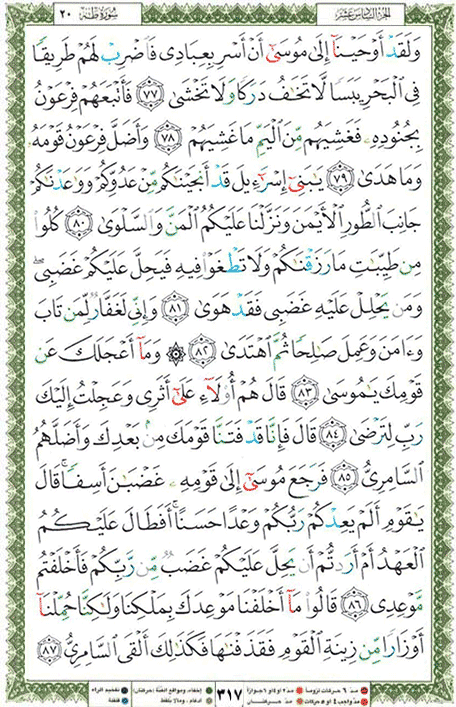 الجزء السادس عشر
سورة طه ٢٠
وَلَقَدْ أَوْحَيْنَآ إِلَىٰ مُوسَىٰٓ أَنْ أَسْرِ بِعِبَادِى فَٱضْرِبْ لَهُمْ طَرِيقًا
فِى ٱلْبَحْرِ يَبَسًا لَّا تَخَـٰفُ دَرَكًا وَلَا تَخْشَىٰ ٧٧ فَأَتْبَعَهُمْ فِرْعَوْنُ
بِجُنُودِهِۦ فَغَشِيَهُم مِّنَ ٱلْيَمِّ مَا غَشِيَهُمْ ٧٨ وَأَضَلَّ فِرْعَوْنُ قَوْمَهُۥ
وَمَا هَدَىٰ ٧٩ يَـٰبَنِىٓ إِسْرَٰٓءِيلَ قَدْ أَنجَيْنَـٰكُم مِّنْ عَدُوِّكُمْ وَوَٰعَدْنَـٰكُمْ
جَانِبَ ٱلطُّورِ ٱلْأَيْمَنَ وَنَزَّلْنَا عَلَيْكُمُ ٱلْمَنَّ وَٱلسَّلْوَىٰ ٨٠ كُلُوا۟
مِن طَيِّبَـٰتِ مَا رَزَقْنَـٰكُمْ وَلَا تَطْغَوْا۟ فِيهِ فَيَحِلَّ عَلَيْكُمْ غَضَبِى ۖ
وَمَن يَحْلِلْ عَلَيْهِ غَضَبِى فَقَدْ هَوَىٰ ٨١ وَإِنِّى لَغَفَّارٌ لِّمَن تَابَ
وَءَامَنَ وَعَمِلَ صَـٰلِحًا ثُمَّ ٱهْتَدَىٰ ٨٢ ۞ وَمَآ أَعْجَلَكَ عَن
قَوْمِكَ يَـٰمُوسَىٰ ٨٣ قَالَ هُمْ أُو۟لَآءِ عَلَىٰٓ أَثَرِى وَعَجِلْتُ إِلَيْكَ
رَبِّ لِتَرْضَىٰ ٨٤ قَالَ فَإِنَّا قَدْ فَتَنَّا قَوْمَكَ مِنۢ بَعْدِكَ وَأَضَلَّهُمُ
ٱلسَّامِرِىُّ ٨٥ فَرَجَعَ مُوسَىٰٓ إِلَىٰ قَوْمِهِۦ غَضْبَـٰنَ أَسِفًا ۚ قَالَ
يَـٰقَوْمِ أَلَمْ يَعِدْكُمْ رَبُّكُمْ وَعْدًا حَسَنًا ۚ أَفَطَالَ عَلَيْكُمُ
ٱلْعَهْدُ أَمْ أَرَدتُّمْ أَن يَحِلَّ عَلَيْكُمْ غَضَبٌ مِّن رَّبِّكُمْ فَأَخْلَفْتُم
مَّوْعِدِى ٨٦ قَالُوا۟ مَآ أَخْلَفْنَا مَوْعِدَكَ بِمَلْكِنَا وَلَـٰكِنَّا حُمِّلْنَآ
أَوْزَارًا مِّن زِينَةِ ٱلْقَوْمِ فَقَذَفْنَـٰهَا فَكَذَٰلِكَ أَلْقَى ٱلسَّامِرِىُّ ٨٧
مد ٦ حركات لزوماً مد ٢ او ٤ او ٦ جوازاً
مد واجب ٤ او ٥ حركات مد حركتان
٣١٧
إخفاء، ومواقع الغنة (حركتان) تفخيم الراء
ادغام، وما لا يلفظ قلقلة